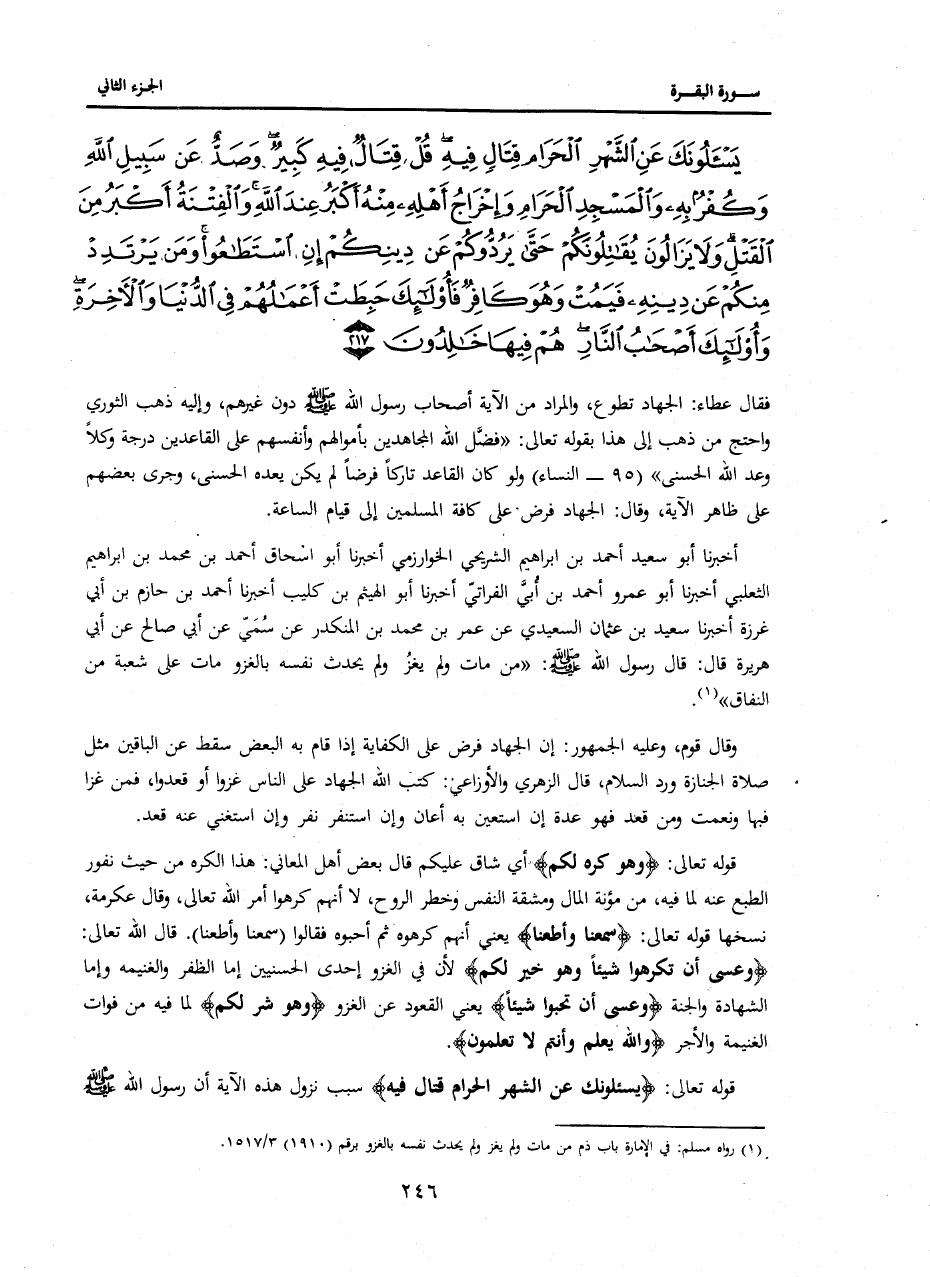 سورة البقرة
الجزء الثاني
يَسْـَٔلُونَكَ عَنِ ٱلشَّهْرِ ٱلْحَرَامِ قِتَالٍ فِيهِ ۖ قُلْ قِتَالٌ فِيهِ كَبِيرٌ ۖ وَصَدٌّ عَن سَبِيلِ ٱللَّهِ
وَكُفْرٌۢ بِهِۦ وَٱلْمَسْجِدِ ٱلْحَرَامِ وَإِخْرَاجُ أَهْلِهِۦ مِنْهُ أَكْبَرُ عِندَ ٱللَّهِ ۚ وَٱلْفِتْنَةُ أَكْبَرُ مِنَ
ٱلْقَتْلِ ۗ وَلَا يَزَالُونَ يُقَـٰتِلُونَكُمْ حَتَّىٰ يَرُدُّوكُمْ عَن دِينِكُمْ إِنِ ٱسْتَطَـٰعُوا۟ ۚ وَمَن يَرْتَدِدْ
مِنكُمْ عَن دِينِهِۦ فَيَمُتْ وَهُوَ كَافِرٌ فَأُو۟لَـٰٓئِكَ حَبِطَتْ أَعْمَـٰلُهُمْ فِى ٱلدُّنْيَا وَٱلْـَٔاخِرَةِ ۖ
وَأُو۟لَـٰٓئِكَ أَصْحَـٰبُ ٱلنَّارِ ۖ هُمْ فِيهَا خَـٰلِدُونَ ٢١٧
فقال عطاء: الجهاد تطوع، والمراد من الآية أصحاب رسول الله ﷺ دون غيرهم، وإليه ذهب الثوري
واحتج من ذهب إلى هذا بقوله تعالى: «فضَّل الله المجاهدين بأموالهم وأنفسهم على القاعدين درجة وكلاً
وعد الله الحسنى» (٩٥ ــ النساء) ولو كان القاعد تاركاً فرضاً لم يكن يعده الحسنى، وجرى بعضهم
على ظاهر الآية، وقال: الجهاد فرض على كافة المسلمين إلى قيام الساعة.
أخبرنا أبو سعيد أحمد بن ابراهيم الشريحي الخوارزمي أخبرنا أبو اسحاق أحمد بن محمد بن ابراهيم
الثعلبي أخبرنا أبو عمرو أحمد بن أُبيَّ الفراتيّ أخبرنا أبو الهيثم بن كليب أخبرنا أحمد بن حازم بن أبي
غرزة أخبرنا سعيد بن عثمان السعيدي عن عمر بن محمد بن المنكدر عن سُمَيّ عن أبي صالح عن أبي
هريرة قال: قال رسول الله ﷺ: «من مات ولم يغزُ ولم يحدث نفسه بالغزو مات على شعبة من
النفاق»(١).
وقال قوم، وعليه الجمهور: إن الجهاد فرض على الكفاية إذا قام به البعض سقط عن الباقين مثل
صلاة الجنازة ورد السلام، قال الزهري والأوزاعي: كتب الله الجهاد على الناس غزوا أو قعدوا، فمن غزا
فبها ونعمت ومن قعد فهو عدة إن استعين به أعان وإن استنفر نفر وإن استغني عنه قعد.
قوله تعالى: ﴿وهو كره لكم﴾ أي شاق عليكم قال بعض أهل المعاني: هذا الكره من حيث نفور
الطبع عنه لما فيه، من مؤنة المال ومشقة النفس وخطر الروح، لا أنهم كرهوا أمر الله تعالى، وقال عكرمة،
نسخها قوله تعالى: ﴿سمعنا وأطعنا﴾ يعني أنهم كرهوه ثم أحبوه فقالوا (سمعنا وأطعنا). قال الله تعالى:
﴿وعسى أن تكرهوا شيئاً وهو خير لكم﴾ لأن في الغزو إحدى الحسنيين إما الظفر والغنيمه وإما
الشهادة والجنة ﴿وعسى أن تحبوا شيئاً﴾ يعني القعود عن الغزو ﴿وهو شر لكم﴾ لما فيه من فوات
الغنيمة والأجر ﴿والله يعلم وأنتم لا تعلمون﴾.
قوله تعالى: ﴿يسئلونك عن الشهر الحرام قتال فيه﴾ سبب نزول هذه الآية أن رسول الله ﷺ
(١) رواه مسلم: في الإمارة باب ذم من مات ولم يغز ولم يحدث نفسه بالغزو برقم (١٩١٠) ١٥١٧/٣.
٢٤٦